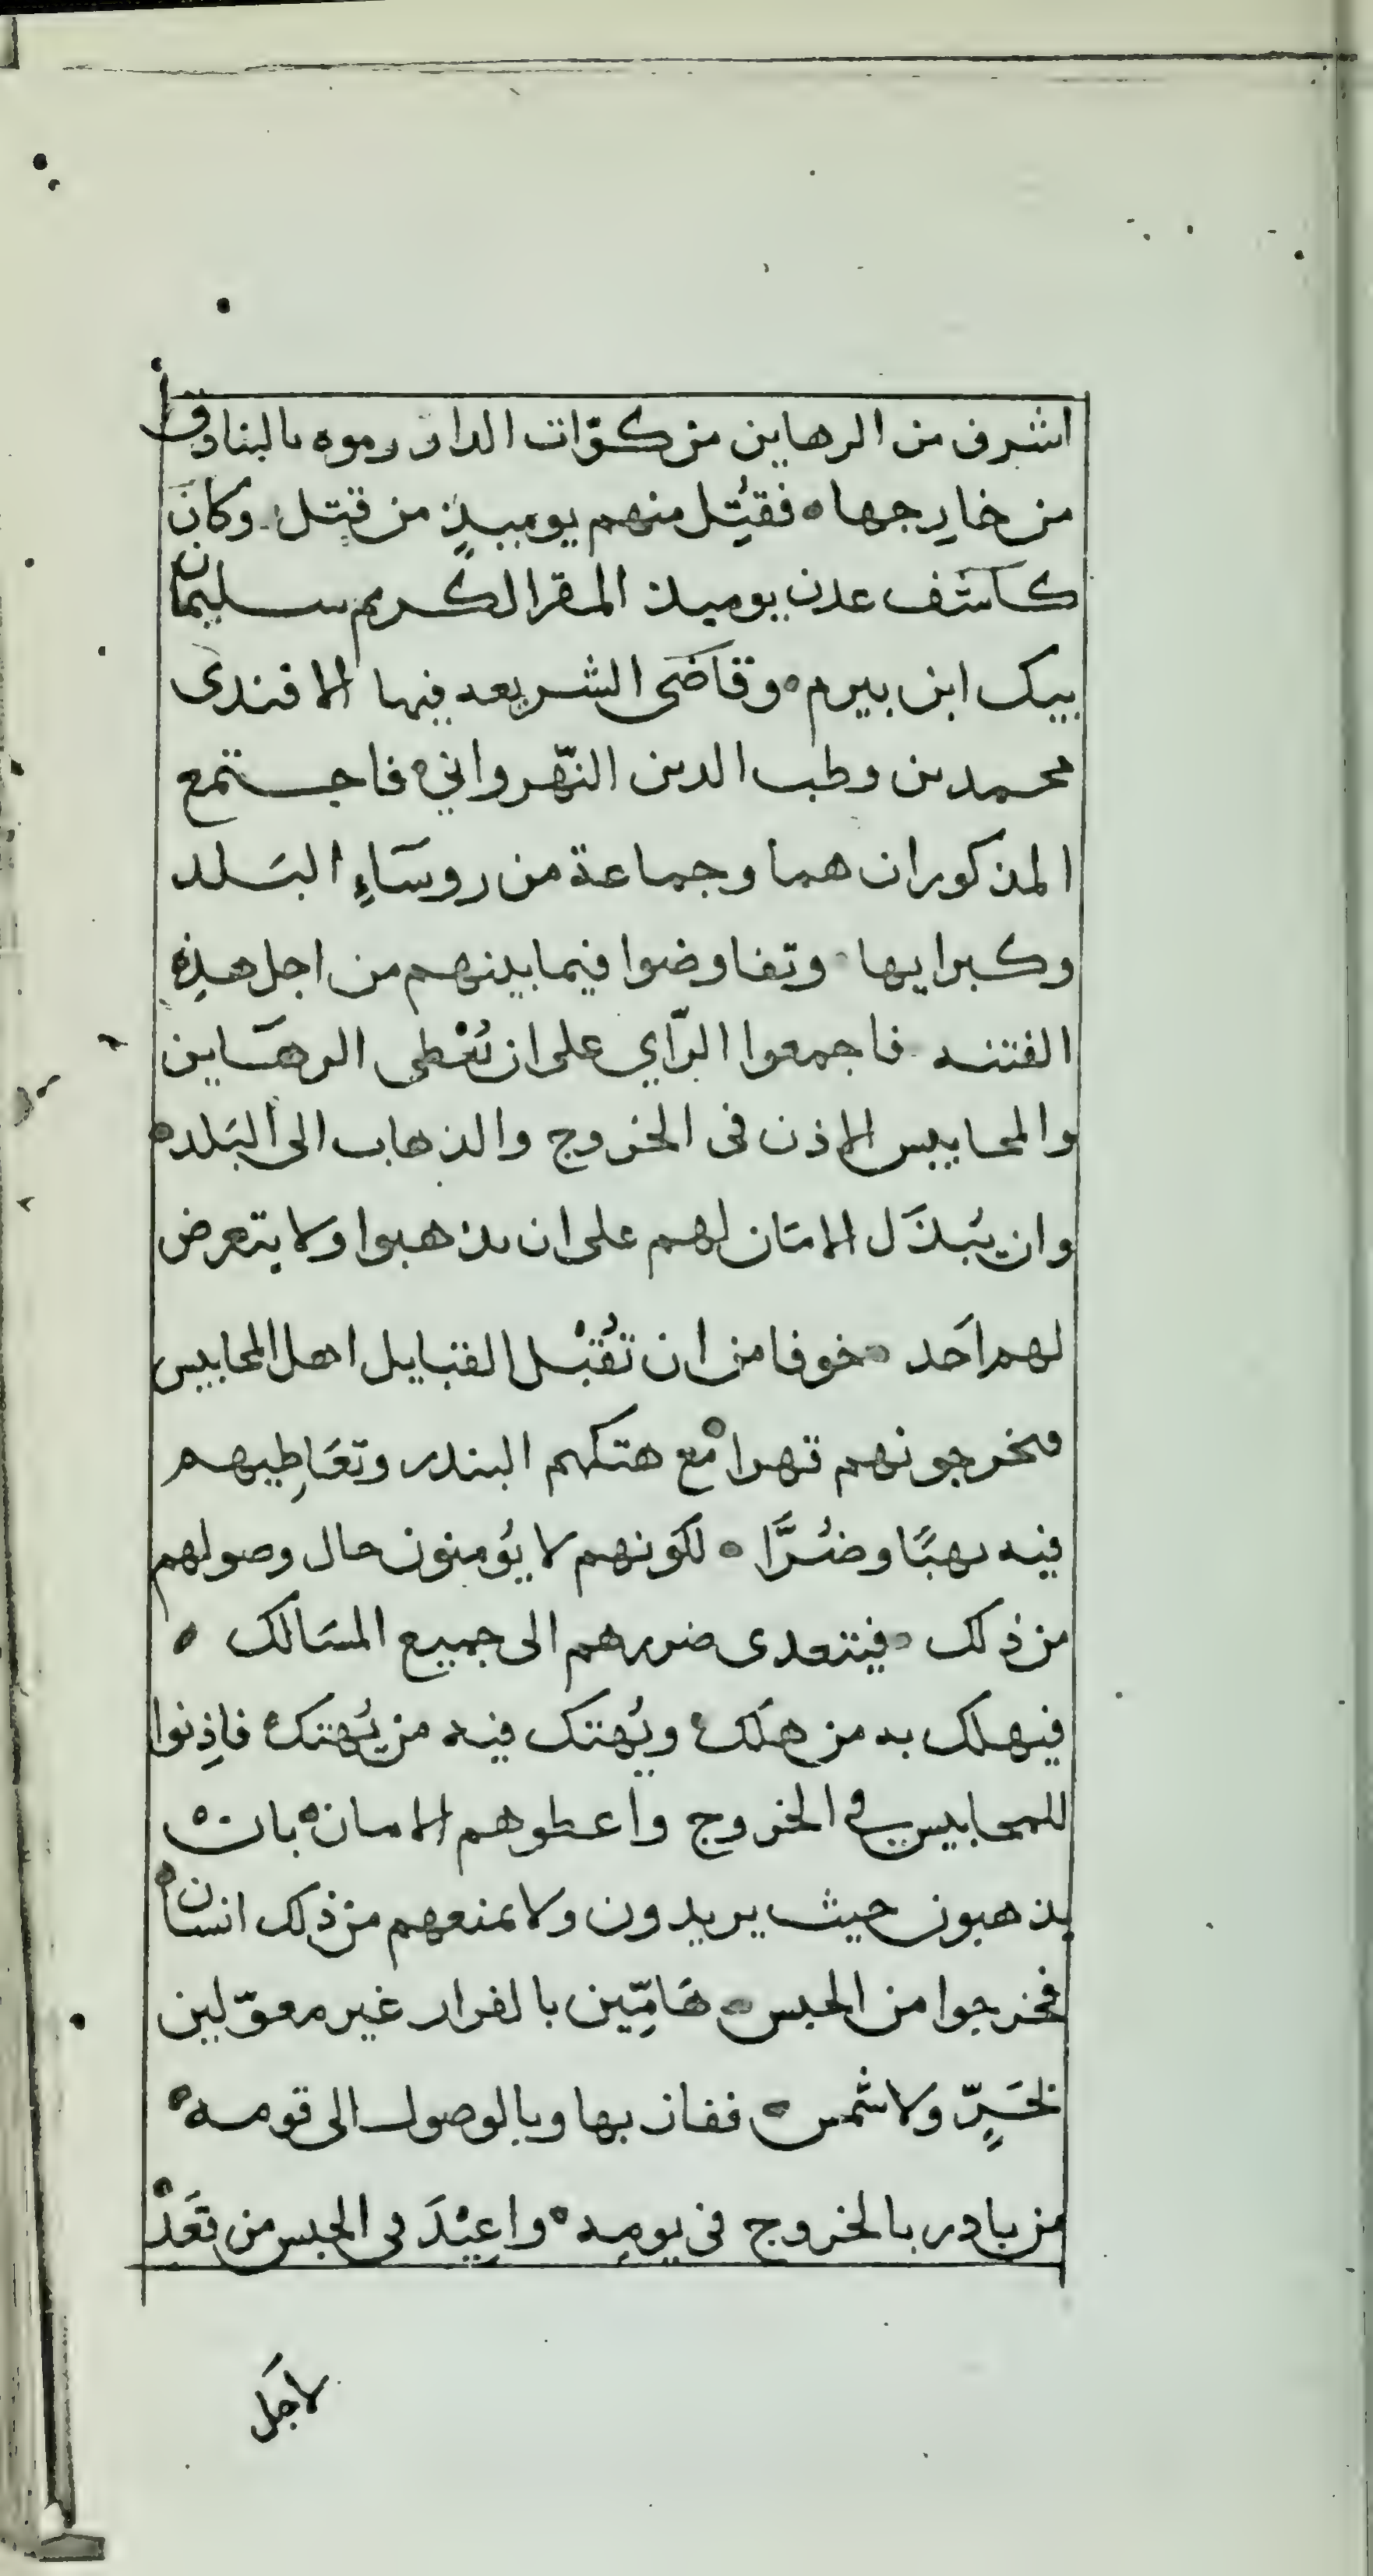 اشرف من الرهاين من كوّات الدار رموه بالبنادق
من خارجها ٥ فقُتِل منهم يوميذٍ من قتل وكان
كاشف عدن يوميذ المقر الكريم سليمان
بيك ابن بيرم ٥ وقاضى الشريعه فيها الافندى
محمد بن قطب الدين النّهرواني ٥ فاجتمع
المذكوران هما وجماعة من روسَاءِ البَلد
وكبرايها وتفاوضوا فيما بينهم من اجل هذِه
الفتنه فاجمعوا الرّاي على ان تُعْطى الرهَاين
والمحابيس الاذن فى الخروج والذهاب الى البَلد ٥
وان يُبذَل الامَان لهم على ان يذهبوا ولا يتعرض
لهم احَد ٥ خوفا من ان تُقْبْل القبايل اهل المحابيس
فيخرجونهم قهرا ٥ مع هتكهم البندر وتعَاطِيهم
فيه نهبًا وضُرَّا ٥ لكونهم لا يُومنون حال وصولهم
من ذلك ٥ فيتعدى ضررهم الى جميع المسَالك ٥
فيهلك به من هلَك ٥ ويُهتك فيه من يُهتك ٥ فاذِنوا
للمحابيس في الخروج واعطوهم الامان ٥ بان
يذهبون حيث يريدون ولا يمنعهم من ذلك انسان ٥
فخرجوا من الحبس ٥ هَامِّين بالفرار غير معوّلين
لحَرٍّ ولا شمس ٥ ففاز بها وبالوصول الى قومه ٥
من بادر بالخروج فى يومِه ٥ واعِيْدَ فى الحبس من بَعَدْ
لاجل